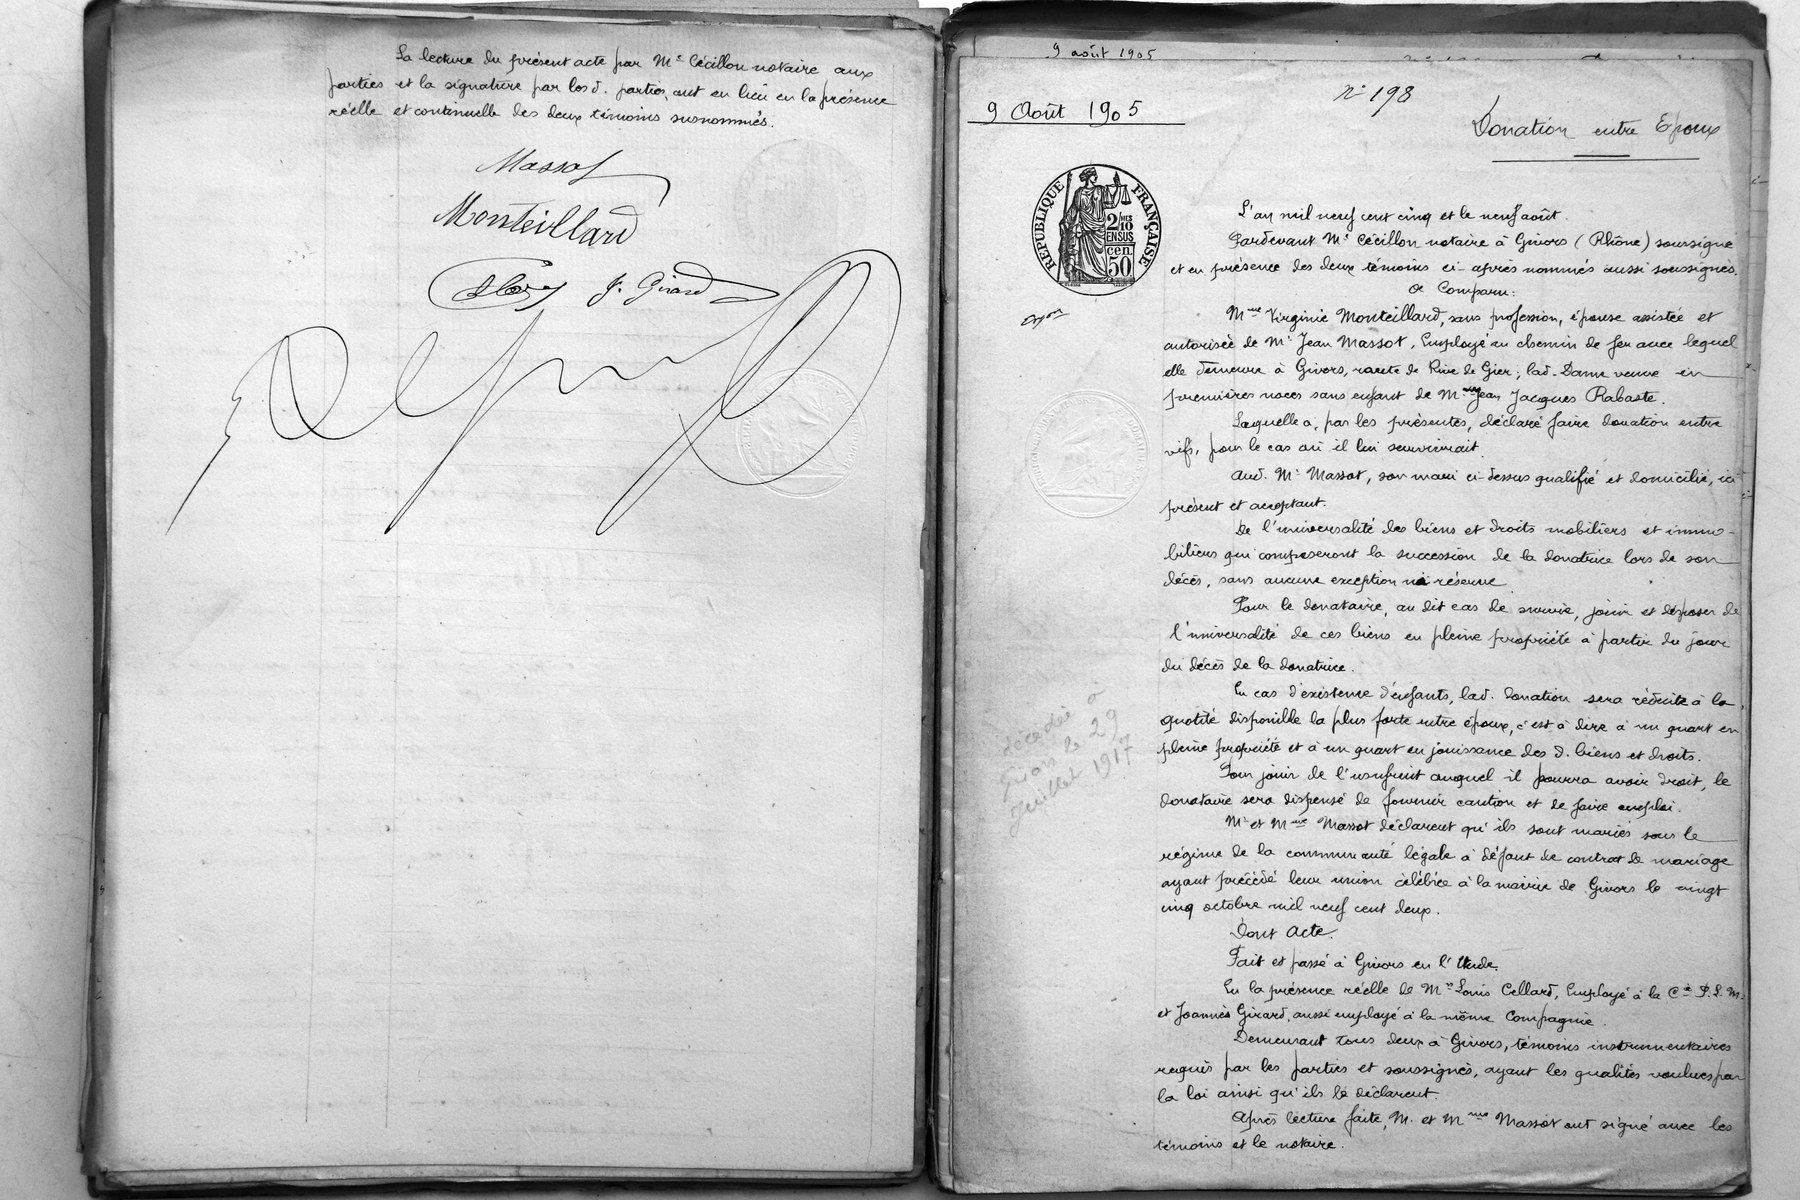 La lecture du présent acte par Me Cécillon notaire aux
parties et la signature par les d. parties, ont eu lieu en la présence
réelle et continuelle des deux témoins susnommés.
Massot
Monteillard
J. Girard
9 août 1905
9 Août 1905
no 198
Donation entre Epoux
RÉPUBLIQUE FRANÇAISE
2/10
EN SUS
cen.
50
L'an mil neuf cent cinq et le neuf août.
Pardevant Me Cécillon notaire à Givors (Rhône) soussigné
et en présence des deux témoins ci-après nommés aussi soussignés.
a Comparu:
Mme Virginie Monteillard, sans profession, épouse assistée et
autorisée de Mr Jean Massot, Employé au chemin de fer avec lequel
elle demeure à Givors, route de Rive de Gier; lad. Dame veuve en
premières noces sans enfant de Mr Jean Jacques Rabaste.
Laquelle a, par les présentes, déclaré faire donation entre
vifs, pour le cas où il lui survivrait.
Aud. Mr Massot, son mari ci-dessus qualifié et domicilié, ici
présent et acceptant.
De l'universalité des biens et droits mobiliers et immo-
biliers qui composeront la succession de la donatrice lors de son
décès, sans aucune exception ni réserve.
Pour le donataire, au dit cas de survie, jouir et disposer de
l'universalité de ces biens en pleine propriété à partir du jour
du décès de la donatrice.
En cas d'existence d'enfants, lad. donation sera réduite à la
quotité disponible la plus forte entre époux, c'est à dire à un quart en
pleine propriété et à un quart en jouissance des d. biens et droits.
Pour jouir de l'usufruit auquel il pourra avoir droit, le
donataire sera dispensé de fournir caution et de faire emploi.
Mr et Mme Massot déclarent qu'ils sont mariés sous le
régime de la communauté légale à défaut de contrat de mariage
ayant précédé leur union célébrée à la mairie de Givors le vingt
cinq octobre mil neuf cent deux.
Dont Acte.
Fait et passé à Givors en l'Etude.
En la présence réelle de Mrs Louis Cellard, Employé à la Cie P.L.M.
et Joannès Girard, aussi employé à la même Compagnie.
Demeurant tous deux à Givors, témoins instrumentaires
requis par les parties et soussignés, ayant les qualités voulues par
la loi ainsi qu'ils le déclarent.
Après lecture faite, M. et Mme Massot ont signé avec les
témoins et le notaire.
décédée à
Givors le 29
Juillet 1917